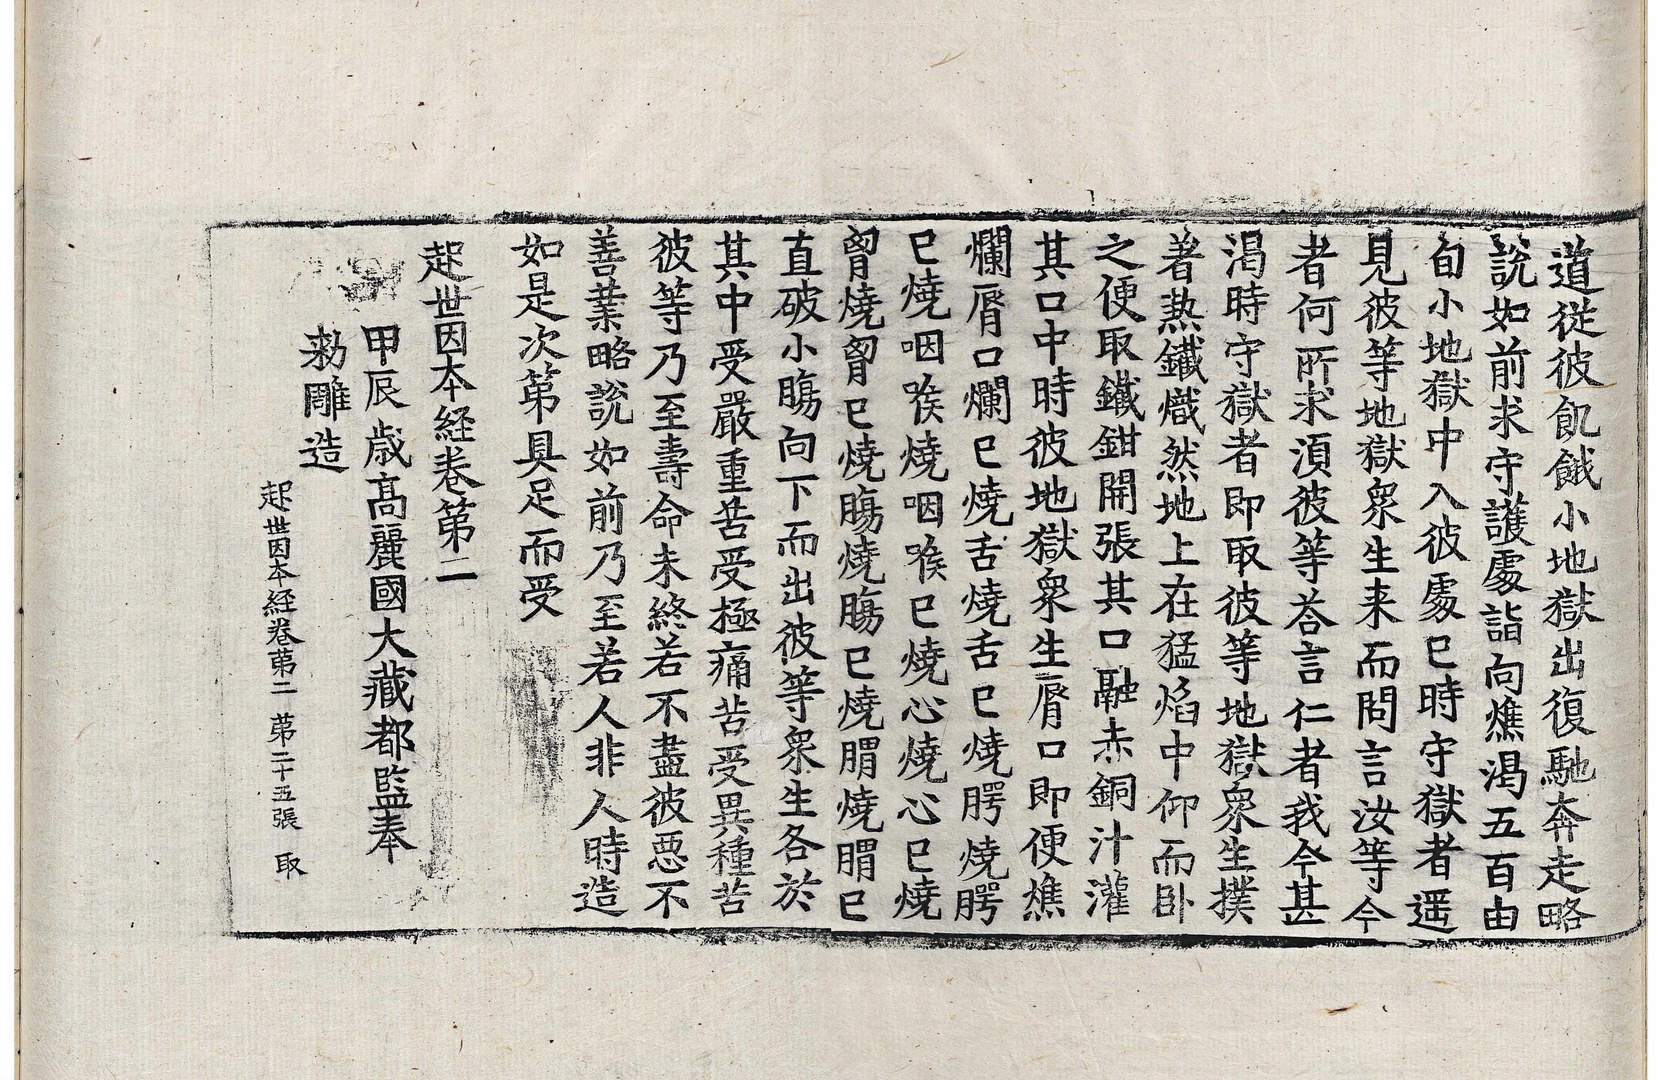 道從彼飢餓小地獄出復馳奔走略
說如前求守護處詣向燋渴五百由
旬小地獄中入彼處已時守獄者遥
見彼等地獄衆生来而問言汝等今
者何所求湏彼等荅言仁者我今甚
渴時守獄者即取彼等地獄衆生撲
著熱鐵熾然地上在猛焰中仰而卧
之便取鐵鉗開張其口融赤銅汁灌
其口中時彼地獄衆生脣口即便燋
爛脣口爛已燒舌燒舌已燒腭燒腭
已燒咽喉燒咽喉已燒心燒心已燒
胷燒胷已燒膓燒膓已燒胃燒胃已
直破小膓向下而出彼等衆生各於
其中受嚴重苦受極痛苦受異種苦
彼等乃至壽命未終若不盡彼惡不
善業略說如前乃至若人非人時造
如是次第具足而受
起世因本経卷第二
甲辰歲高麗國大藏都監奉
勑雕造
起世因本経卷第二 第二十五張 取